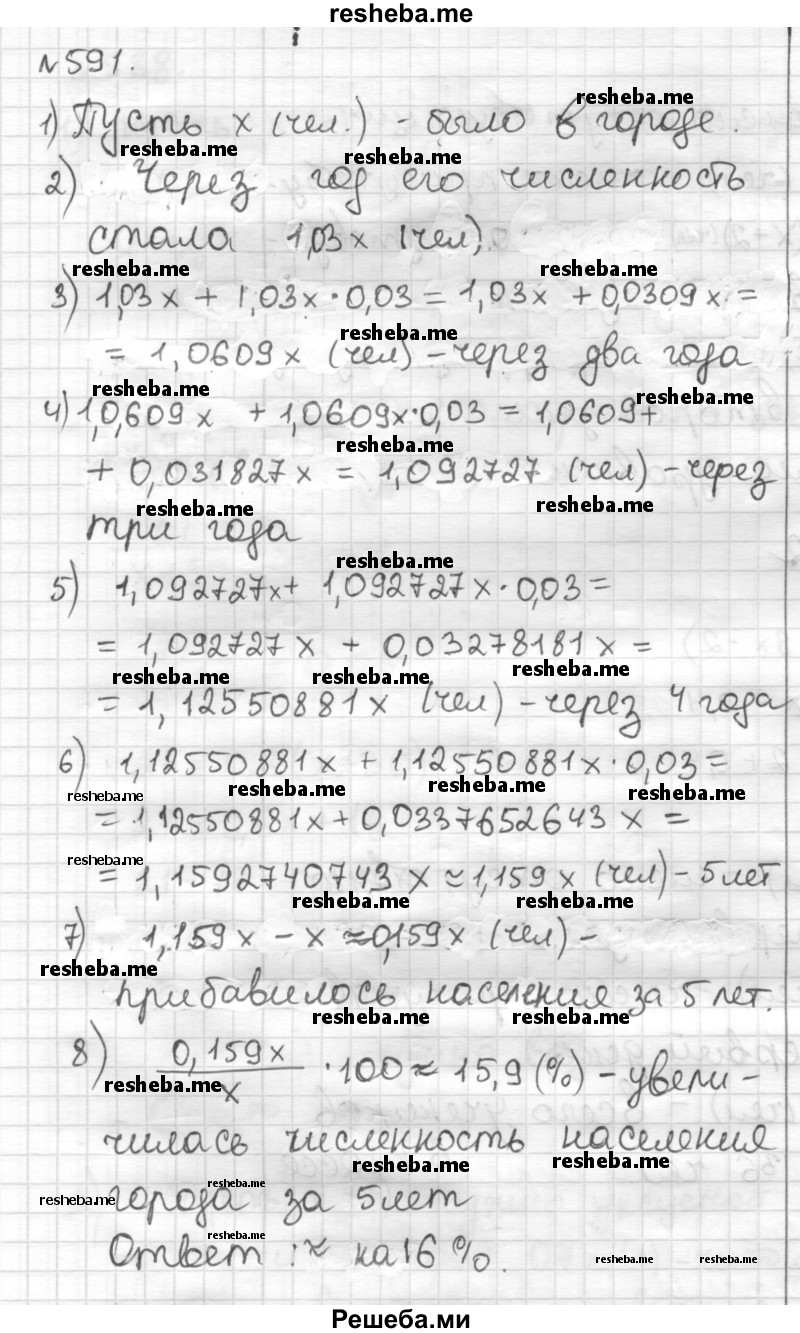 resheba.me
№591.
1) Пусть x (чел.) - было в городе.
resheba.me
resheba.me
resheba.me
2) Через год его численность
стала 1,03x (чел)
resheba.me
resheba.me
3) 1,03x + 1,03x·0,03 = 1,03x + 0,0309x =
resheba.me
= 1,0609x (чел) - через два года
resheba.me
resheba.me
4) 1,0,609x + 1,0609x·0,03 = 1,0609+
resheba.me
+ 0,031827x = 1,092727 (чел) - через
resheba.me
resheba.me
три года
resheba.me
5) 1,092727x+ 1,092727x·0,03 =
= 1,092727x + 0,03278181x =
resheba.me
resheba.me
resheba.me
= 1,12550881x (чел) - через 4 года
6) 1,12550881x + 1,12550881x·0,03 =
resheba.me
resheba.me
resheba.me
resheba.me
= 1,12550881x + 0,0337652643x =
resheba.me
= 1,1592740743x ≈ 1,159x (чел) - 5лет
resheba.me
resheba.me
7) 1,159x - x ≈ 0,159x (чел) -
resheba.me
прибавилось населения за 5 лет.
resheba.me
resheba.me
8) 0,159x/x · 100 ≈ 15,9 (%) - увели-
resheba.me
чилась численность населения
resheba.me
resheba.me
resheba.me
resheba.me
города за 5лет
resheba.me
Ответ: ≈ на 16%.
resheba.me
resheba.me
Решеба.ми